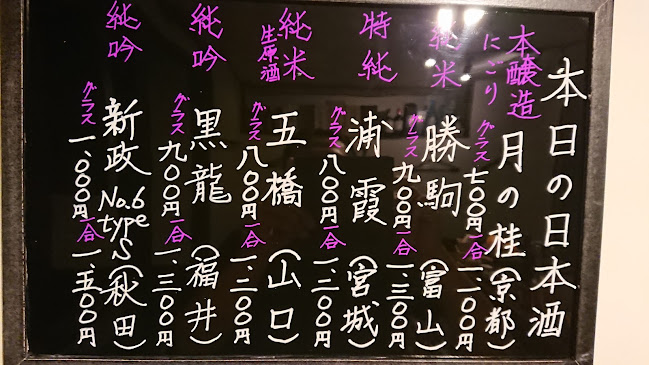 本日の日本酒
本醸造
にごり
月の桂(京都)
グラス七〇〇円 一合一、一〇〇円
純米
勝駒(富山)
グラス九〇〇円 一合一、三〇〇円
特純
浦霞(宮城)
グラス八〇〇円 一合一、二〇〇円
純米
生原酒
五橋(山口)
グラス八〇〇円 一合一、二〇〇円
純吟
黒龍(福井)
グラス九〇〇円 一合一、三〇〇円
純吟
新政 No.6 type S(秋田)
グラス一、〇〇〇円 一合一、五〇〇円